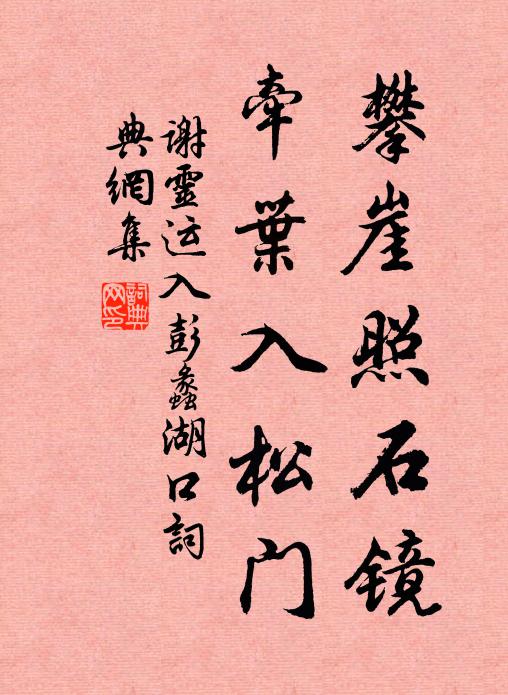 攀崖照石镜
牽葉入松门
谢靈运入彭蠡湖口詞
典網集
詞典网印